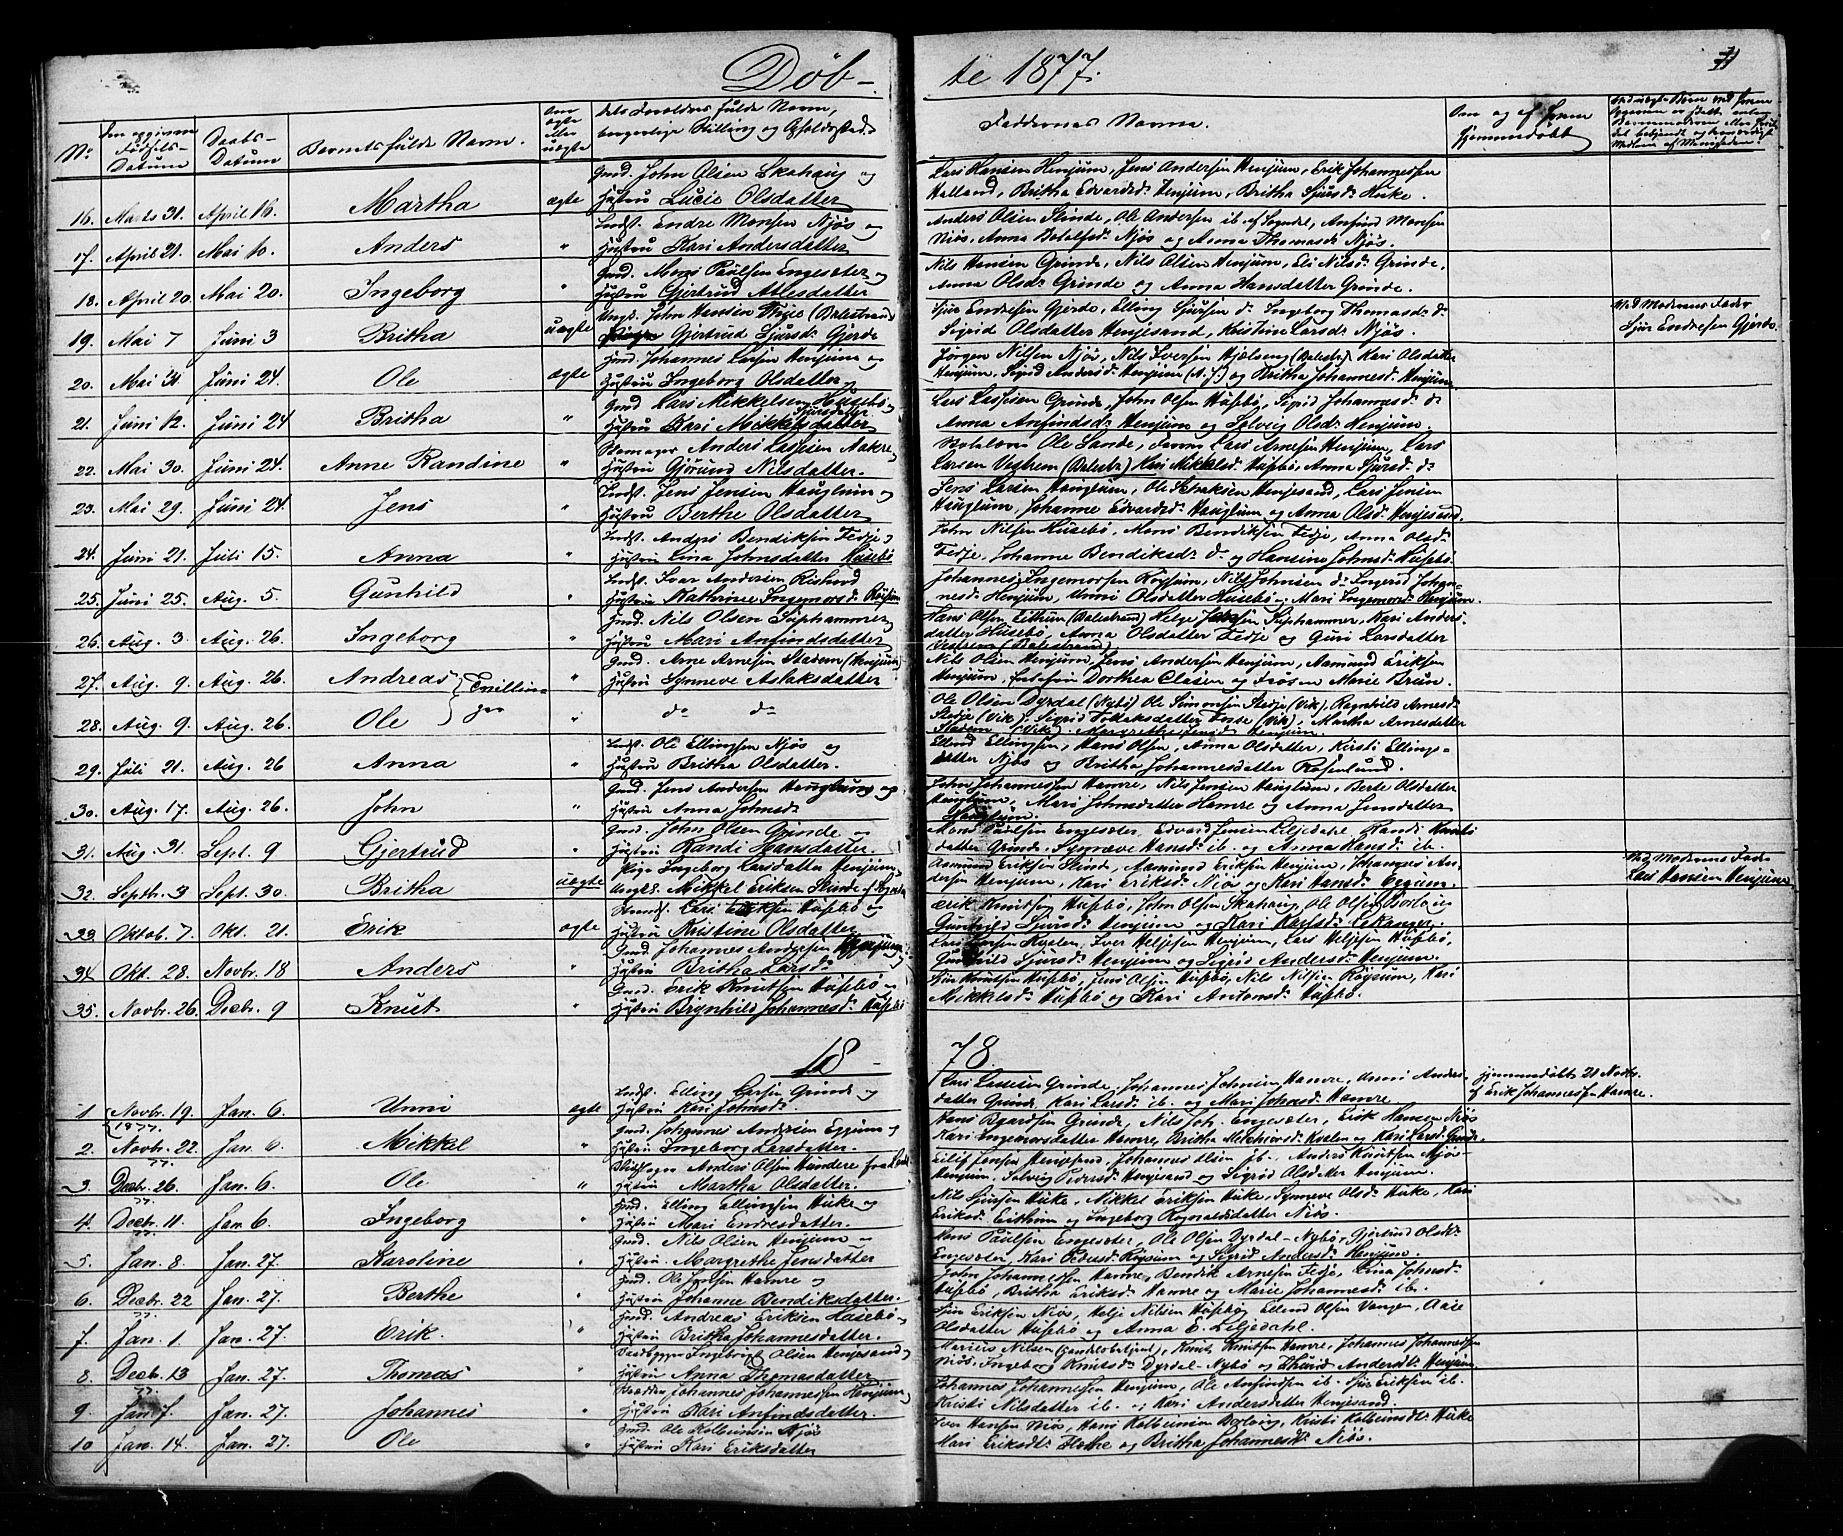 Døb-
te 1877.
No.
Den opgivne Fødsels-Datum
Daabs-Datum
Barnets fulde Navn.
Om ægte eller uægte
dets Forældres fulde Navn, borgerlige Stilling og Opholdssted.
Faddernes Navne.
Om og af hvem hjemmedøbt
16. Marts 31. April 16. Martha ægte
Gmd. John Olsen Skahaug og
Hustru Lucie Olsdatter
Lars Hansen Henjum, Jens Andersen Henjum, Erik Johannessen
Halland, Britha Edvardsd. Henjum, Britha Sjursd. Huke.
17. April 21. Mai 10. Anders "
Indst. Endre Monsen Njøs og
Hustru Kari Andersdatter
Anders Olsen Slinde, Ole Andersen ib. af Sogndal, Anfind Monsen
Niøs, Anna Botolfsd. Njøs og Anna Thomasd. Njøs.
18. April 20. Mai 20. Ingeborg "
Gmd. Mons Paulsen Engesæter og
Hustru Gjertrud Atlesdatter
Nils Hansen Grinde, Nils Olsen Henjum, Eli Nilsd. Grinde,
Anna Olsd. Grinde og Anna Hansdatter Grinde.
19. Mai 7 Juni 3 Britha uægte
Ungk. John Hansen (Balestrand)
Gjertrud Sjursd. Gjerde
Sjur Endresen Gjerde, Elling Sjursen do. Ingeborg Thomasd. do.
Sigrid Olsdatter Henjesand, Kristine Larsd. Njøs.
Ved Moderens Fader
Sjur Endresen Gjerde.
20. Mai 31. Juni 24. Ole ægte
Gmd. Johannes Larsen Henjum og
Hustru Ingeborg Olsdatter
Jørgen Nilsen Njøs, Nils Iversen (Balestr.) Kari Olsdatter
Henjum, Sigrid Andersd. Henjum og Britha Johannesd. Henjum
21. Juni 12. Juni 24 Britha "
Gmd Lars Mikkelsen Husebø
Hustru Kari Sjursdatter
Lars Lassesen Grinde, John Olsen Husebø, Sigrid Johannesd. do
Anna Anfindsd. Henjum og Solveig Olsd. Henjum.
22. Mai 30. Juni 24. Anne Randine "
Anders Lassesen Aakre
Hustru Gjørund Nilsdatter.
Ole Sande, Lars Arnesen Henjum, Lars
Larsen Vestrem (Balestr.) Kari Mikkelsd. Husebø, Anna Sjursd. do
23. Mai 29. Juni 24. Jens "
Indst. Jens Jensen Hauglum og
Hustru Berthe Olsdatter
Jens Larsen Hauglum, Ole Henjesand, Lars Jensen
Hauglum, Johanne Edvardsd. Hauglum og Anna Olsd. Henjesand.
24. Juni 21. Juli 15. Anna "
Indst. Bendiksen Fedje og
Hustru Lina Johnsdatter Husebø
John Nilsen Husebø, Mons Bendiksen Fedje, Anna Olsd.
Fedje, Johanne Bendiksd. do. og Hansine Johnsd. Husebø.
25. Juni 25. Aug. 5. Gunhild "
Indst. Ivar Andersen
Hustru Kathrine Ingemorsd. Røisum
Johannes Ingemorsen Røysum, Nils Johnsen do. Ingrid Johan-
nesd. Henjum, Unni Olsdatter Husebø og Mari Ingemorsd. Henjum.
26. Aug. 3 Aug. 26. Ingeborg "
Gmd. Nils Olsen Suphammer
Hustru Mari Anfindsdatter
Hans Olsen Eithun (Balestrand) Helge Suphammer, Kari Anders-
datter Husebø, Anna Olsdatter Fedje og Guri Larsdatter
Vestrem (Balestrand)
27. Aug. 9. Aug. 26. Andreas } Tvillin- "
Gmd. Arne Arnesen Stadem (Henjum)
Hustru Synneve Aslaksdatter
Nils Olsen Henjum, Jens Andersen Henjum, Aamund Eriksen
Henjum, Dorthea Clasen og Marie Brun.
28. Aug. 9 Aug. 26. Ole } ger "
do do
Ole Olsen Dyrdal (Nybø) Ole Simonsen Stedje (Vik), Ragnhild Arnesd.
Stedje (Vik), Sigrid (Vik), Martha Arnesdatter
Stadem (Vik), Margrethe Jensd. Henjum.
29. Juli 21. Aug. 26 Anna "
Indst. Ole Ellingsen Njøs og
Hustru Britha Olsdatter.
Ellingsen, Hans Olsen, Anna Olsdatter, Kirsti Ellings-
datter Njøs og Britha Johannesdatter Rosenlund.
30. Aug. 17. Aug. 26. John "
Gmd. Jens Andersen Hauglum og
Hustru Anna Johnsd.
John Johannessen Hamre, Nils Jensen Hauglum, Berte Olsdatter
Hauglum, Mari Johnsdatter Hamre og Anna Jensdatter
Hauglum.
31. Aug. 31. Sept. 9 Gjertrud "
Gmd. John Olsen Grinde og
Hustru Randi Hansdatter.
Mons Paulsen Engesæter, Edvard Jensen Liljedahl, Randi
datter Grinde, Synneve Hansd. ib. og Anna Hansd. ib.
32. Septbr. 3 Sept. 30. Britha uægte
Pige Ingeborg Larsdatter Henjum
Ungk. Mikkel Eriksen Slinde af Sogndal
Aamund Eriksen Slinde, Aamund Eriksen Henjum, Johannes An-
dersen Henjum, Kari Eriksd. Njøs og Kari Hansd. Eggum.
Ved Moderens Fader
Lars Hansen Henjum
33. Oktob. 7. Okt. 21. Erik ægte
Lars Eriksen Husebø og
Hustru Kristine Olsdatter
Erik Knutsen Husebø, John Olsen Skahaug, Ole Olsen
Gunhild Sjursd. Henjum og Kari Leikanger.
34 Okt. 28. Novbr. 18 Anders "
Gmd. Johannes Andersen Henjum
Hustru Britha Larsd.
Lars Kvalen, Iver Heljesen Henjum, Lars Heljesen Husebø,
Gunhild Sjursd. Henjum og Sigrid Andersd. Henjum.
35. Novbr. 26. Decbr. 9 Knut "
Gmd. Erik Knutsen Husebø
Hustru Brynhild Johannesd. Husebø
Knutsen Husebø, Jens Olsen Husebø, Nils Nilsen Røysum, Kari
Mikkelsd. Husebø og Kari Antonsd. Husebø.
18
78.
1 Novbr. 19. 1877. Jan. 6. Unni ægte
Indst. Elling Larsen Grinde og
Hustru Kari Johnsd.
Lars Lassesen Grinde, Johannes Johnsen Hamre, Unni Anders-
datter Grinde, Kari Larsd. ib. og Mari Johnsd. Hamre
hjemmedøbt 21 Novbr.
af Erik Johannessen Hamre.
2. Novbr. 22 77. Jan. 6. Mikkel "
Gmd. Johannes Andersen Eggum og
Hustru Ingeborg Larsdatter.
Hans Grinde, Nils Joh. Engesæter, Erik Hansen Njøs
Kari Ingemorsdatter Hamre, Britha Melchiorsd. Kvalen og Kari Larsd. Grinde.
3. Decbr. 26. 77. Jan. 6. Ole "
Anders Olsen
Hustru Martha Olsdatter.
Eilif Jensen Henjesand, Johannes Olsen ib. Anders Knutsen Njøs-
Henjum, Solveig Pedersd. Henjesand og Sigrid Olsdatter Henjum.
4. Decbr. 11. 77. Jan 6. Ingeborg "
Gmd. Elling Ellingsen Huke og
Hustru Mari Endresdatter.
Nils Sjursen Huke, Mikkel Eriksen Huke, Synneve Olsd. Huke, Kari
Eriksd. Eithun og Ingeborg Rognaldsdatter Niøs.
5. Jan. 8. Jan. 27. Karoline "
Gmd. Nils Olsen Henjum
Hustru Margrethe Jensdatter
Mons Paulsen Engesæter, Ole Olsen Dyrdal-Nybø, Gjertrud Olsd.
Engesæter, Kari Pedersd. Røysum og Sigrid Andersd. Henjum.
6. Decbr. 22 77. Jan. 27. Berthe "
Gmd. Ole Hamre og
Hustru Johanne Bendiksdatter.
John Johannessen Hamre, Bendik Arnesen Fedje, Lina Johnsd.
Husebø, Britha Eriksd. Hamre og Marie Johannesd. ib.
7. Jan. 1. Jan. 27. Erik. "
Gmd. Andreas Eriksen Husebø
Hustru Britha Johannesdatter.
Sjur Eriksen Niøs, Helje Nilsen Husebø, Erlend Olsen Vangen,
Olsdatter Husebø og Anna E. Liljedahl.
8. Decbr. 13 77. Jan. 27. Thomas "
Ingebrigt Olsen Henjesand og
Hustru Anna Thomasdatter
Marius Nilsen, Knut Knutsen Hamre, Johannes Johannessen
Niøs, Ingeborg Knutsd. Dyrdal-Nybø og Andersdt. Henjum
9. Jan 7. Jan. 27. Johannes "
Johannes Johannessen Henjum
Hustru Kari Anfindsdatter.
Johannes Johannessen Henjum, Ole Anfindsen ib. Sjur Eriksen ib.
Kristi Nilsdatter ib. og Kari Andersdatter Henjesand.
10 Jan. 14. Jan. 27. Ole "
Gmd. Ole Kolbeinsen Njøs
Hustru Kari Eriksdatter
Iver Hansen Niøs, Hans Kolbeinsen, Kristi Kolbeinsdt. Huke
Mari Eriksdt. og Britha Johannesdt. Niøs.